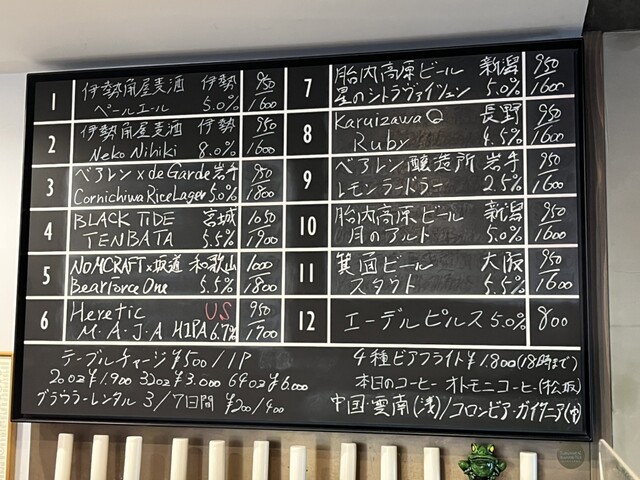 1 伊勢角屋麦酒 伊勢 950
ペールエール 5.0% 1600
2 伊勢角屋麦酒 伊勢 950
Neko Nihiki 8.0% 1600
3 ベアレン×de Garde 岩手
Cornichiwa Rice Lager 5.0% 1800
4 BLACK TIDE 宮城 1050
TENBATA 5.5% 1900
5 NOMCRAFT×坂道 和歌山 1000
Bearforce One 5.5% 1800
6 Heretic US 950
M.A.J.A HIPA 6.7% 1700
7 胎内高原ビール 新潟 950
星のシトラヴァイツェン 5.0% 1600
8 Karuizawa 長野 950
Ruby 4.5% 1600
9 ベアレン醸造所 岩手 950
レモンラードラー 2.5% 1600
10 胎内高原ビール 新潟 950
月のアルト 5.0% 1600
11 箕面ビール 大阪 950
スタウト 5.5% 1600
12 エーデルピルス 5.0% 800
テーブルチャージ ¥500/1P
20oz ¥1.900 32oz ¥3.000 64oz ¥6.000
グラウラーレンタル 3/7日間 ¥200/400
4種ビアフライト ¥1.800 (18時まで)
本日のコーヒー オトモニコーヒー(松阪)
中国・雲南(浅)/コロンビア・ガイタニア(中)